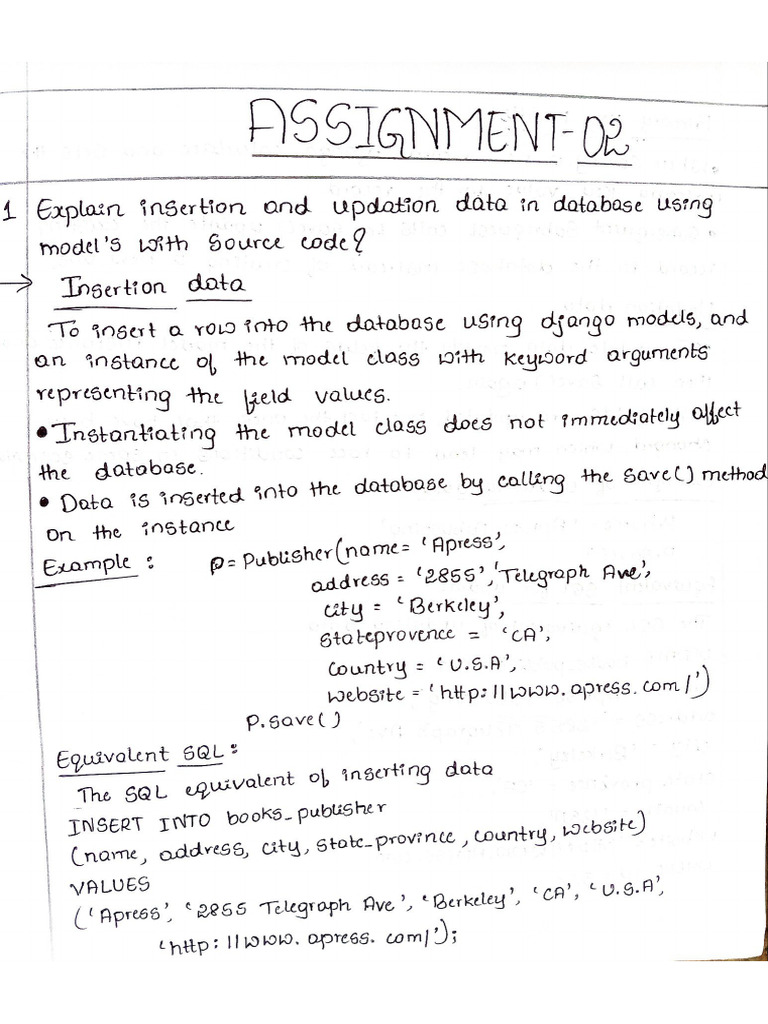 ASSIGNMENT-02
1 Explain insertion and updation data in database using
model's with source code?
→ Insertion data
To insert a row into the database using django models, and
an instance of the model class with keyword arguments
representing the field values.
• Instantiating the model class does not immediately affect
the database.
• Data is inserted into the database by calling the save() method
on the instance
Example : p = Publisher(name= 'Apress',
address = '2855' 'Telegraph Ave',
city = 'Berkeley',
stateprovence = 'CA',
country = 'U.S.A',
website = 'http://www.apress.com/')
p.save()
Equivalent SQL :
The SQL equivalent of inserting data
INSERT INTO books_publisher
(name, address, city, state_province, country, website)
VALUES
('Apress', '2855 Telegraph Ave', 'Berkeley', 'CA', 'U.S.A',
'http://www.apress.com/');